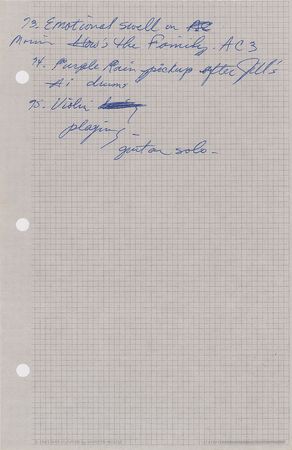 73. Emotional swell on
Movin How's the Family. AC3
74. Purple Rain pickup after Jill's
drums
75. Violin
playing
guitar solo